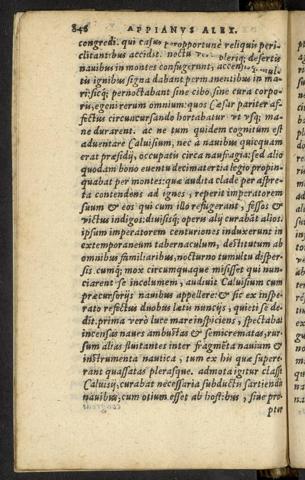 846 APPIANVS ALEX.
congredi. qui casus peropportunè reliquis peri-
clitantibus accidit. noctu plerique desertis
nauibus in montes confugerunt, accensisque
tis ignibus signa dabant permanentibus in ma-
ri: sicq; pernoctabant sine cibo, sine cura corpo-
ris, egeni rerum omnium: quos Cæsar pariter af-
fectus circuncursando hortabatur vt vsq; ma-
ne durarent. ac ne tum quidem cognitum est
aduentare Caluisium, nec à nauibus quicquam
erat præsidij, occupatis circa naufragia: sed alio
quodam bono euentu decimatertia legio propin-
quabat per montes: quæ audita clade per aspre-
ta contendens ad ignes, reperit imperatorem
suum & eos qui cum illo refugerant, fessos &
victus indigos: diuisisq; operis alij curabāt alios.
ipsum imperatorem centuriones induxerunt in
extemporaneum tabernaculum, destitutum ab
omnibus familiaribus, nocturno tumultu disper-
sis. cumq; mox circumquaque misisset qui nun-
ciarent se incolumem, audiuit Caluisium cum
præcursorijs nauibus appellere: & sic ex inspe-
rato refectus duobus lætis nuncijs, quieti se de-
dit. prima verò luce mare inspiciens, spectabat
incensas naues ambustas & semicrematas, rur-
sum alias fluitantes inter fragmēta nauium &
instrumenta nautica, tum ex his quæ supere-
rant quassatas plerasque. admota igitur classe
Caluisij, curabat necessaria subductis sartiendis
nauibus, cum otium esset ab hostibus, siue pro-
pter